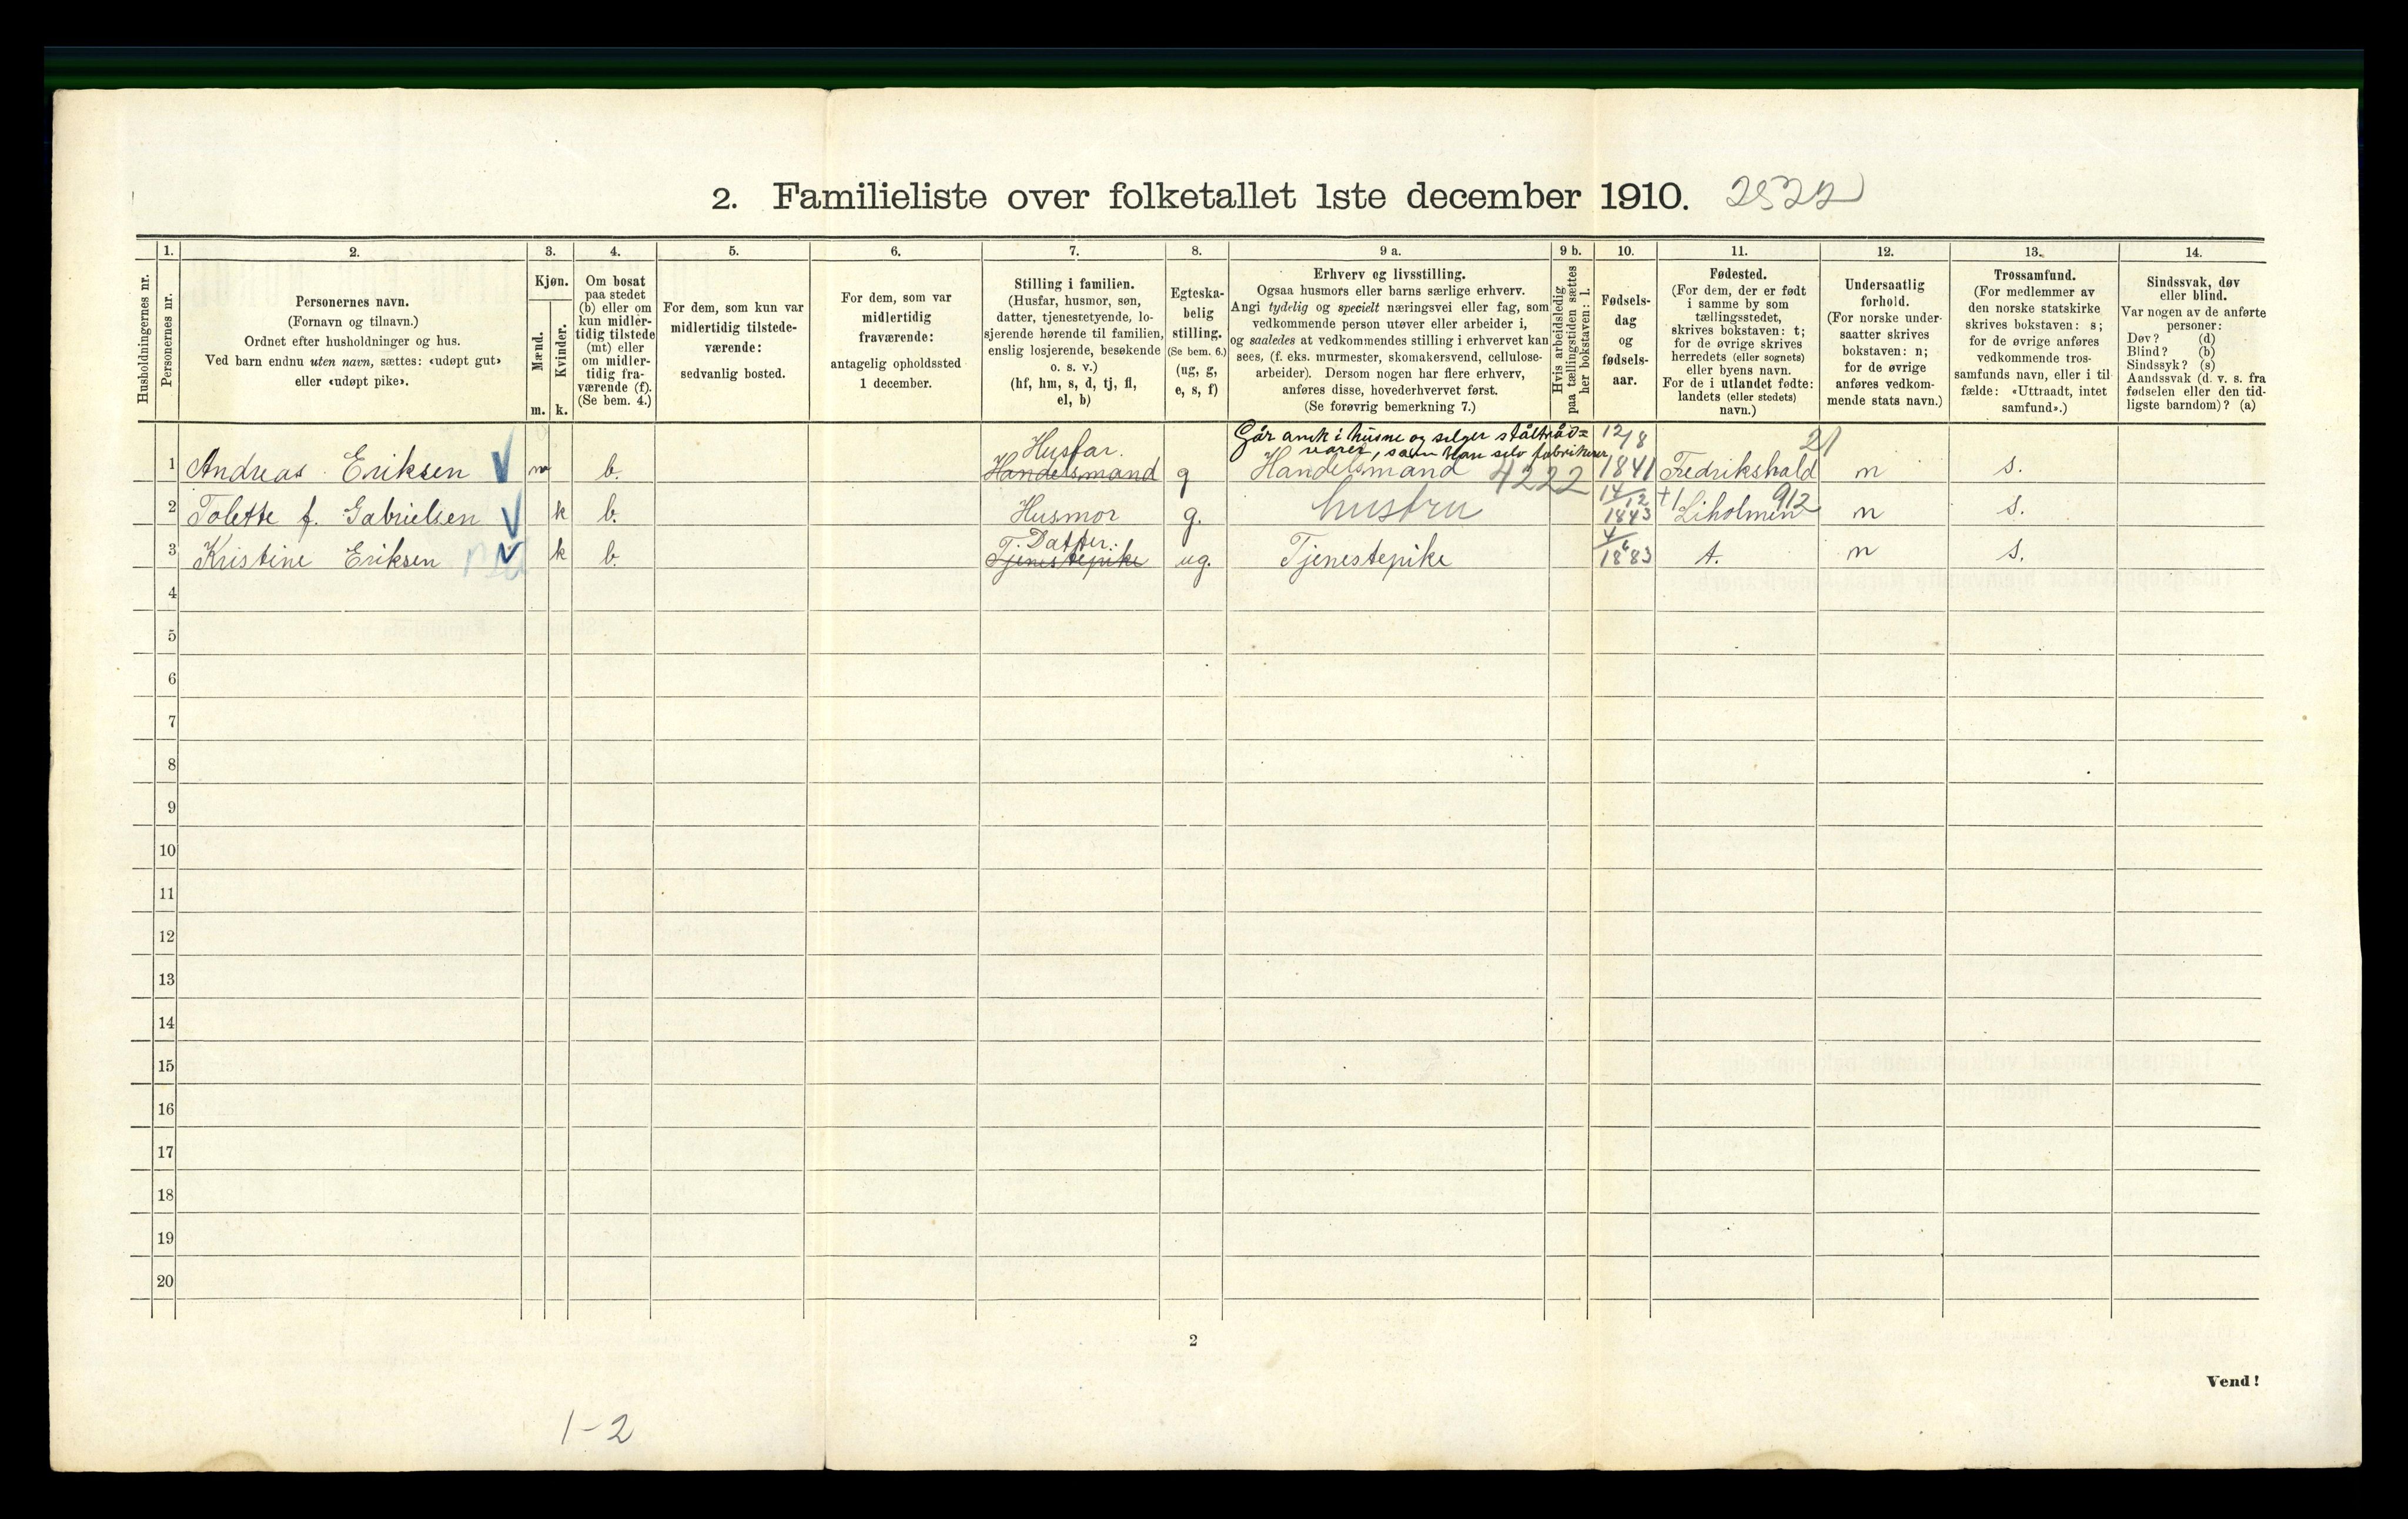 2. Familieliste over folketallet 1ste december 1910. 2522
Husholdningernes nr.
1.
Personernes nr.
2.
Personernes navn.
(Fornavn og tilnavn.)
Ordnet efter husholdninger og hus.
Ved barn endnu uten navn, sættes: «udøpt gut»
eller «udøpt pike».
3.
Kjøn.
Mænd.
Kvinder.
m. k.
4.
Om bosat
paa stedet
(b) eller om
kun midler-
tidig tilstede
(mt) eller
om midler-
tidig fra-
værende (f).
(Se bem. 4.)
5.
For dem, som kun var
midlertidig tilstede-
værende:
sedvanlig bosted.
6.
For dem, som var
midlertidig
fraværende:
antagelig opholdssted
1 december.
7.
Stilling i familien.
(Husfar, husmor, søn,
datter, tjenesretyende, lo-
sjerende hørende til familien,
enslig losjerende, besøkende
o. s. v.)
(hf, hm, s, d, tj, fl,
el, b)
8.
Egteska-
belig
stilling.
(Se bem. 6.)
(ug, g,
e, s, f)
9 a.
Erhverv og livsstilling.
Ogsaa husmors eller barns særlige erhverv.
Angi tydelig og specielt næringsvei eller fag, som
vedkommende person utøver eller arbeider i,
og saaledes at vedkommendes stilling i erhvervet kan
sees, (f. eks. murmester, skomakersvend, cellulose-
arbeider). Dersom nogen har flere erhverv,
anføres disse, hovederhvervet først.
(Se forøvrig bemerkning 7.)
9 b.
Hvis arbeidsledig
paa tællingstiden sættes
her bokstaven: l.
10.
Fødsels-
dag
og
fødsels-
aar.
11.
Fødested.
(For dem, der er født
i samme by som
tællingsstedet,
skrives bokstaven: t;
for de øvrige skrives
herredets (eller sognets)
eller byens navn.
For de i utlandet fødte:
landets (eller stedets)
navn.)
12.
Undersaatlig
forhold.
(For norske under-
saatter skrives
bokstaven: n;
for de øvrige
anføres vedkom-
mende stats navn.)
13.
Trossamfund.
(For medlemmer av
den norske statskirke
skrives bokstaven: s;
for de øvrige anføres
vedkommende tros-
samfunds navn, eller i til-
fælde: «Uttraadt, intet
samfund».)
14.
Sindssvak, døv
eller blind.
Var nogen av de anførte
personer:
Døv? (d)
Blind? (b)
Sindssyk? (s)
Aandssvak (d. v. s. fra
fødselen eller den tid-
ligste barndom)? (a)
Husfar. Går omk i husne og selger ståltråd= 12/8 21
varer, som han selv fabrikerer,
1 Andreas Eriksen m b. Handelsmand g Handelsmand 4222 1841 Fredrikshald n s.
2 Tolette f. Gabrielsen k b. Husmor g. hustru 14/12 1843 Liholmen 912 n s.
T. Datter.
3 Kristine Eriksen k b. Tjenestepike ug. Tjenestepike 4/6 1883 t. n s.
4
5
6
7
8
9
10
11
12
13
14
15
16
17
18
19
20
2
Vend!
1-2